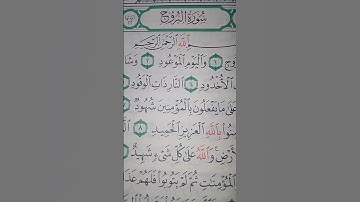 سُورَةُ الْبُرُوجِ
اللَّهِ الرَّحْمَٰنِ الرَّحِيمِ
وجِ ١ وَالْيَوْمِ الْمَوْعُودِ ٢ وَشَا
الْأُخْدُودِ ٤ النَّارِ ذَاتِ الْوَقُودِ
عَلَىٰ مَا يَفْعَلُونَ بِالْمُؤْمِنِينَ شُهُودٌ
مِنُوا بِاللَّهِ الْعَزِيزِ الْحَمِيدِ ٨
رْضِ وَاللَّهُ عَلَىٰ كُلِّ شَيْءٍ شَهِيدٌ
الْمُؤْمِنَاتِ ثُمَّ لَمْ يَتُوبُوا فَلَهُمْ عَذَا